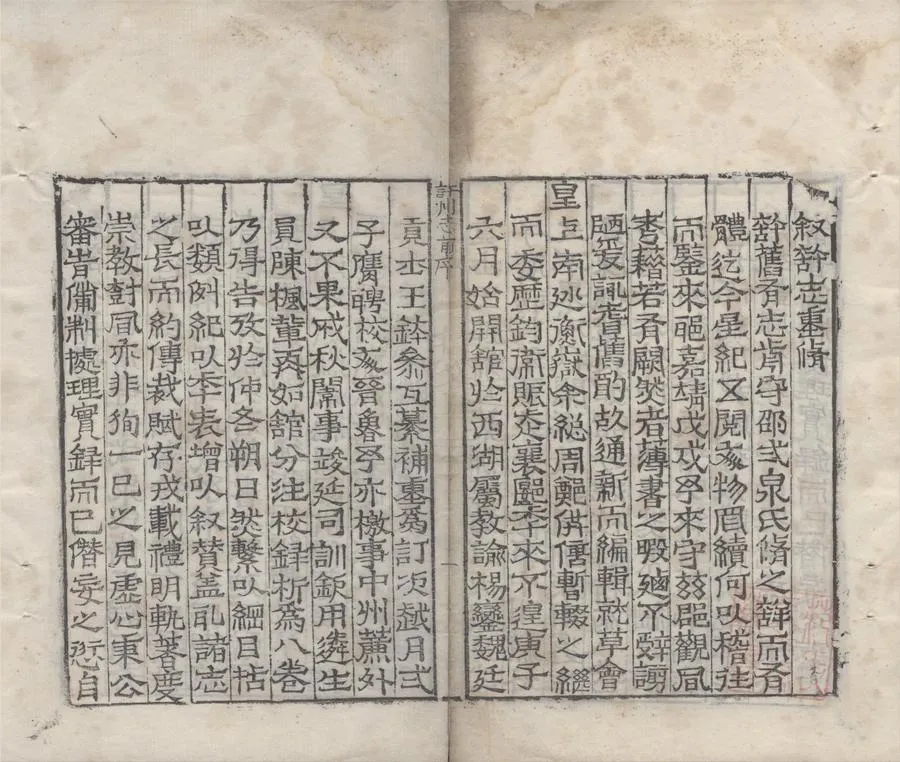 敘鄦志重脩
鄦舊有志前守邵弍泉氏脩之辭而有
體迄今星紀五閱文物罔續何以稽往
而鑒來嘉靖戊戌予來守茲邑觀風
考籍若有闕然者薄書之暇廼不辭謭
陋爰諏耆舊酌故通新而編輯就草會
皇上南巡衡嶽余總周鄭供偫暫輟之繼
而委歷鈞賑襄郾卒來不遑庚子
六月始開舘於西湖屬教諭楊鑾魏廷
許州志前序
一
貢士王參互纂補重為訂次越月弍
子膺聘校文晉魯予亦檄事中州簾外
又不果成秋闈事竣延司訓欽用遴生
員陳楓輩再如舘分注校錄析為八卷
乃得告攷於仲冬朔日然繫以綱目括
以類例紀以年表增以敘贊盖取諸志
之長而約傳裁賦存戎載禮明軌著度
崇教對風亦非徇一己之見虛心秉公
審時備制處理實錄而已僭妄之愆自